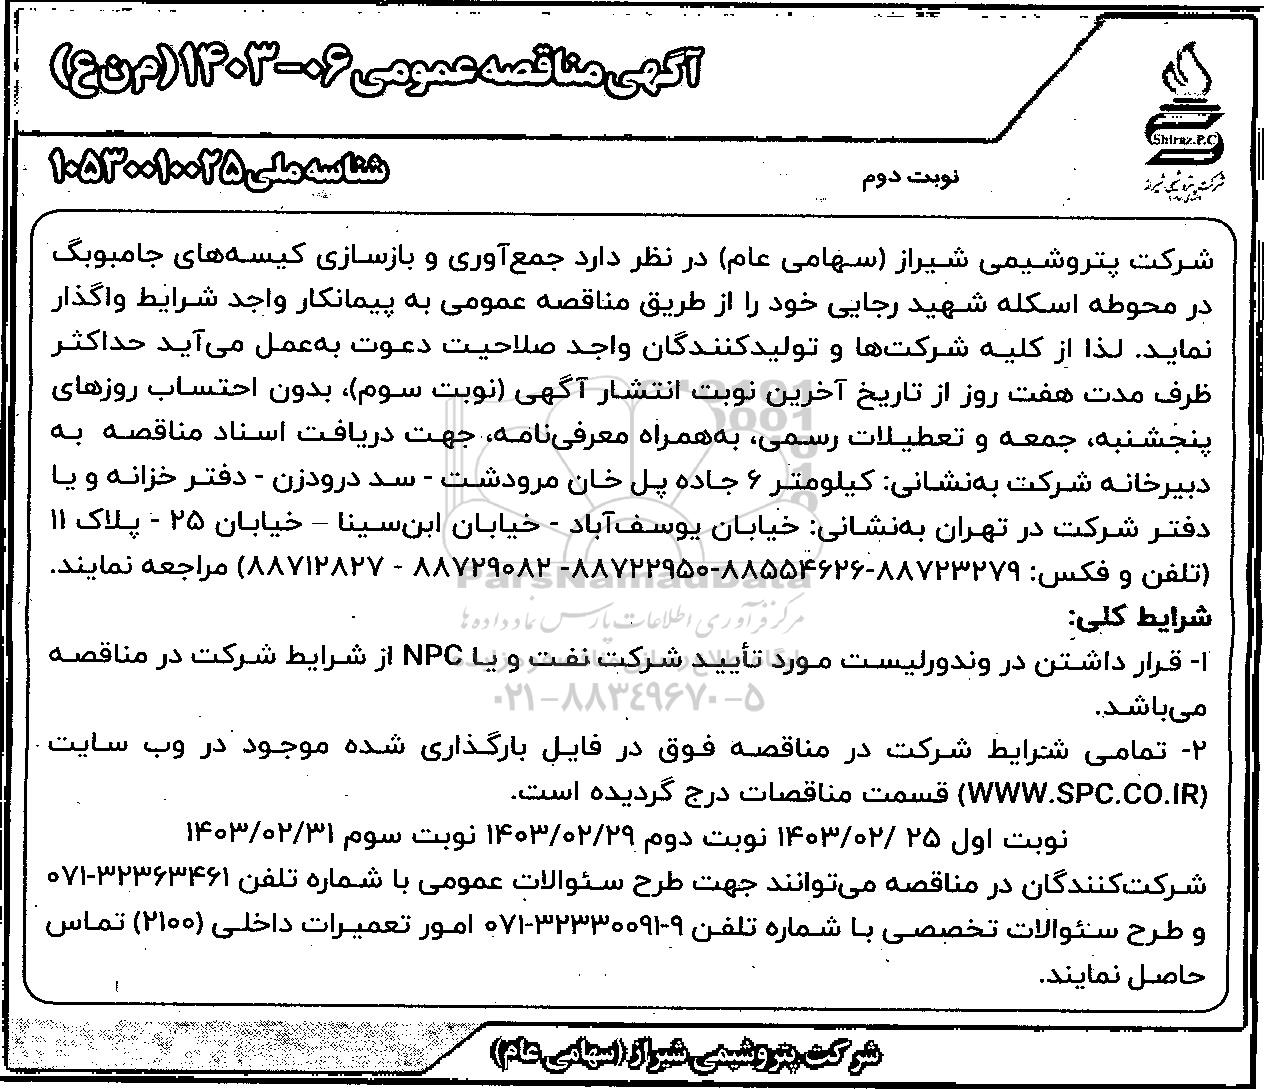 آگهی مناقصه عمومی ۰۶-۱۴۰۳ (م ن ع)
Shiraz.P.C
شرکت پتروشیمی شیراز
نوبت دوم
شناسه ملی ۱۰۵۳۰۰۱۰۰۲۵
شرکت پتروشیمی شیراز (سهامی عام) در نظر دارد جمع‌آوری و بازسازی کیسه‌های جامبوبگ
در محوطه اسکله شهید رجایی خود را از طریق مناقصه عمومی به پیمانکار واجد شرایط واگذار
نماید. لذا از کلیه شرکت‌ها و تولیدکنندگان واجد صلاحیت دعوت به‌عمل می‌آید حداکثر
ظرف مدت هفت روز از تاریخ آخرین نوبت انتشار آگهی (نوبت سوم)، بدون احتساب روزهای
پنجشنبه، جمعه و تعطیلات رسمی، به‌همراه معرفی‌نامه، جهت دریافت اسناد مناقصه به
دبیرخانه شرکت به‌نشانی: کیلومتر ۶ جاده پل خان مرودشت - سد درودزن - دفتر خزانه و یا
دفتر شرکت در تهران به‌نشانی: خیابان یوسف‌آباد - خیابان ابن‌سینا – خیابان ۲۵ - پلاک ۱۱
(تلفن و فکس: ۸۸۷۲۳۲۷۹-۸۸۵۵۴۶۲۶-۸۸۷۲۲۹۵۰- ۸۸۷۲۹۰۸۲ - ۸۸۷۱۲۸۲۷) مراجعه نمایند.
ParsNamadData
مرکز فرآوری اطلاعات پارس نماد داده‌ها
شرایط کلی:
۱- قرار داشتن در وندورلیست مورد تأیید شرکت نفت و یا NPC از شرایط شرکت در مناقصه
می‌باشد.
۰۲۱-۸۸۳۴۹۶۷۰-۵
۲- تمامی شرایط شرکت در مناقصه فوق در فایل بارگذاری شده موجود در وب سایت
(WWW.SPC.CO.IR) قسمت مناقصات درج گردیده است.
نوبت اول ۲۵ /۱۴۰۳/۰۲ نوبت دوم ۱۴۰۳/۰۲/۲۹ نوبت سوم ۱۴۰۳/۰۲/۳۱
شرکت‌کنندگان در مناقصه می‌توانند جهت طرح سئوالات عمومی با شماره تلفن ۳۲۳۶۳۴۶۱-۰۷۱
و طرح سئوالات تخصصی با شماره تلفن ۹-۳۲۳۳۰۰۹۱-۰۷۱ امور تعمیرات داخلی (۲۱۰۰) تماس
حاصل نمایند.
شرکت پتروشیمی شیراز (سهامی عام)